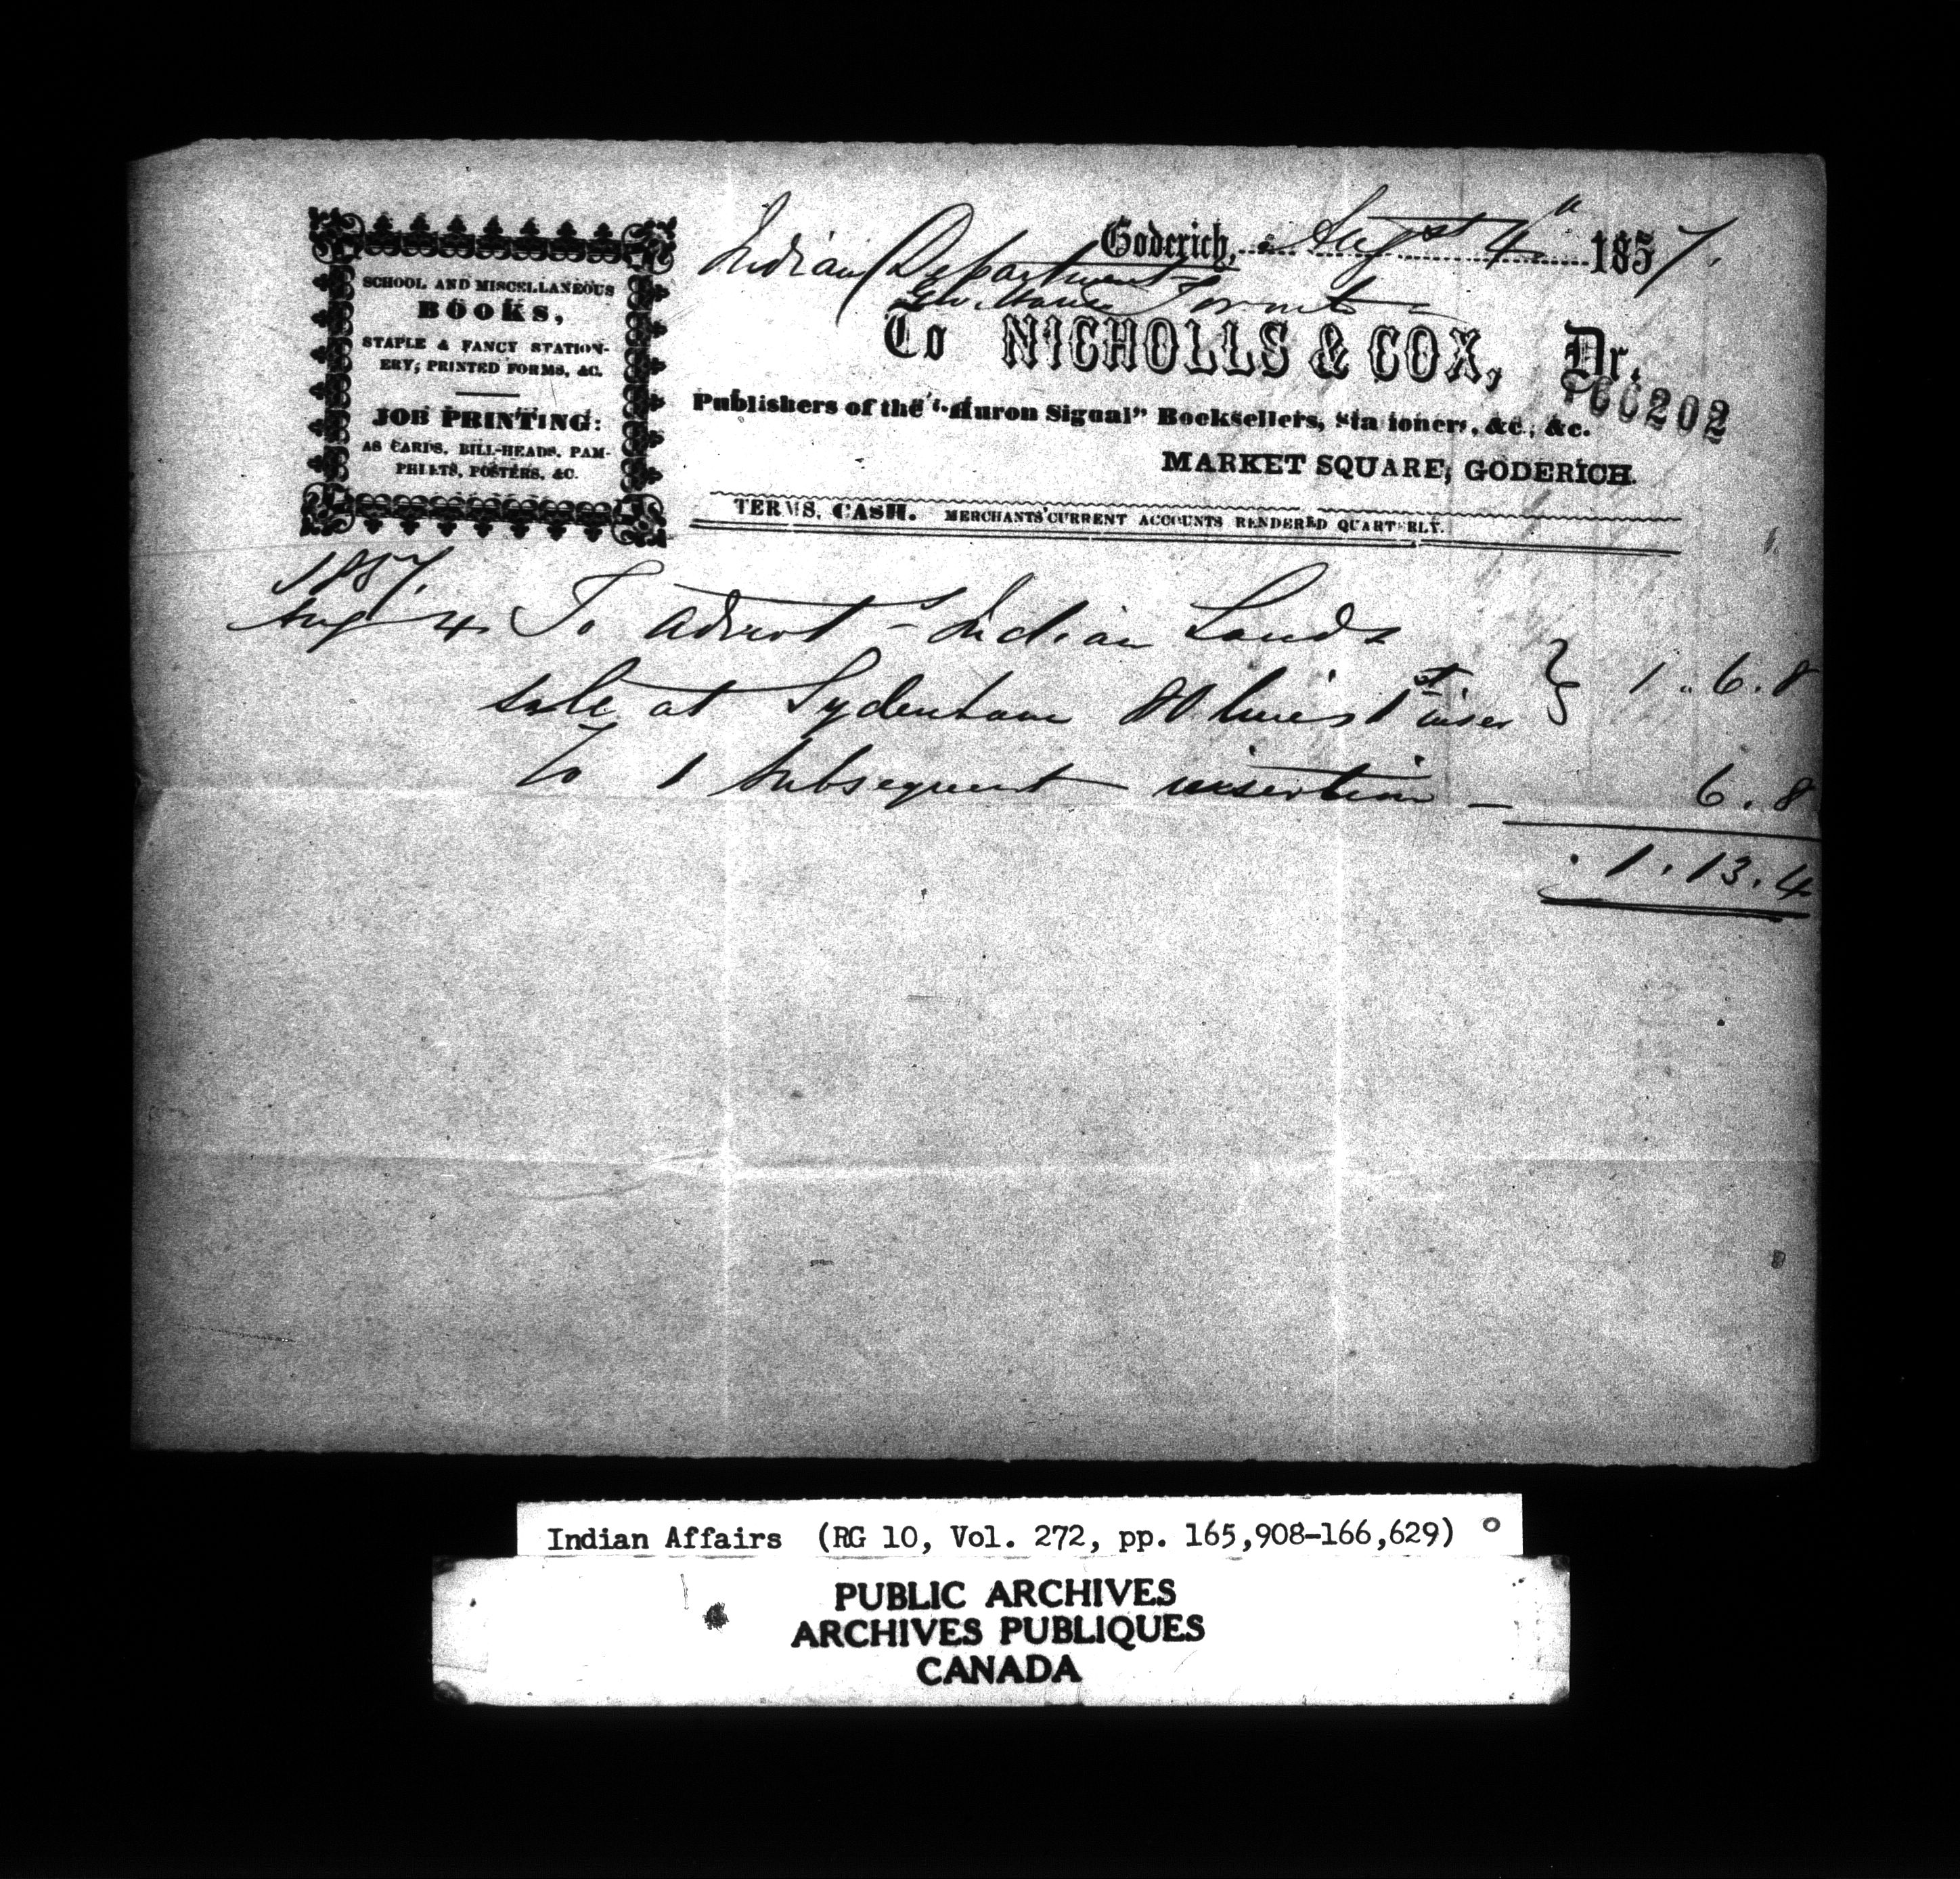 SCHOOL AND MISCELLANEOUS
BOOKS,
STAPLE & FANCY STATION-
ERY; PRINTED FORMS, &C.
JOB PRINTING:
AS CARDS, BILL-HEADS, PAM-
PHLETS, POSTERS, &C.
Goderich, Augst 4th 1857.
Indian Department
Toronto
To NICHOLLS & COX, Dr.
Publishers of the "Huron Signal" Booksellers, Stationers, &c., &c.
MARKET SQUARE, GODERICH.
TERMS, CASH. MERCHANTS' CURRENT ACCOUNTS RENDERED QUARTERLY.
1857.
Aug 4 To Advert - Indian Lands
sale at Sydenham 80 lines 1st inser } 1 .. 6 . 8
To 1 subsequent insertion - 6 . 8
1 . 13 . 4
Indian Affairs (RG 10, Vol. 272, pp. 165,908-166,629)
PUBLIC ARCHIVES
ARCHIVES PUBLIQUES
CANADA